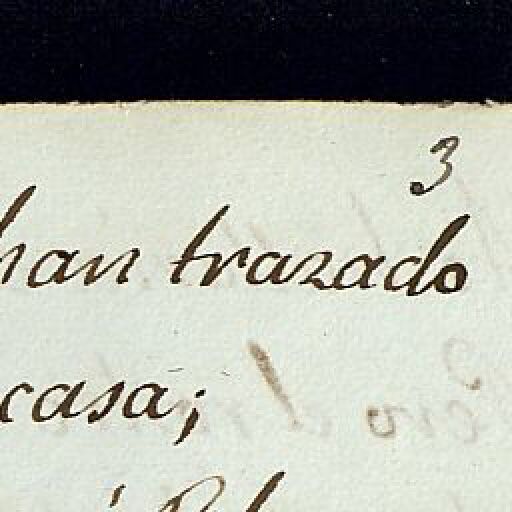 3
han trazado
casa;